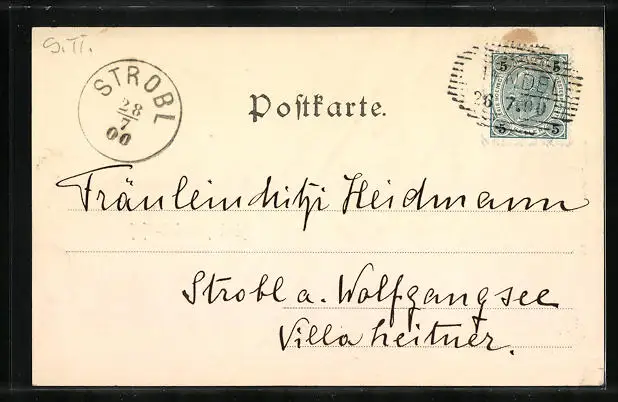 G.TT.
STROBL
28/7
00
Postkarte.
5 5
26 7.00
5 5
Fräulein Mitzi Heidmann
Strobl a. Wolfgangsee
Villa Leitner.